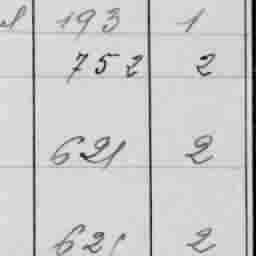 193 1
752 2
621 2
621 2